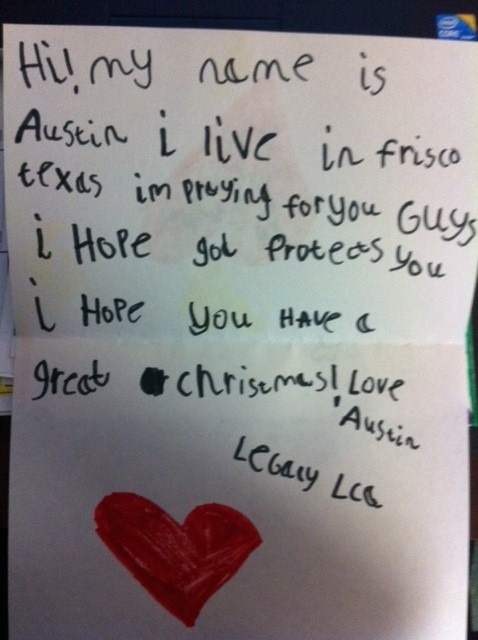 Hi! my name is
Austin i live in frisco
texas im praying for you GUYS
i HoPe god Protects you
i HoPe you HAVE a
great christmas! Love
Austin
LEGacy Lca
intel
CORE